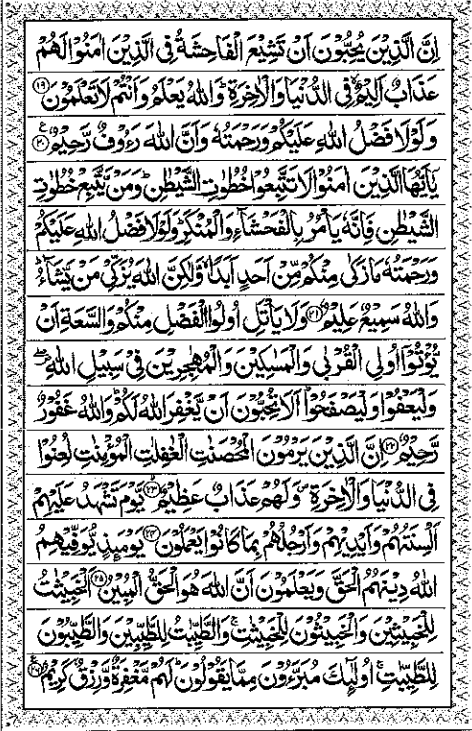 اِنَّ الَّذِیْنَ یُحِبُّوْنَ اَنْ تَشِیْعَ الْفَاحِشَةُ فِی الَّذِیْنَ اٰمَنُوْا لَهُمْ
عَذَابٌ اَلِیْمٌۙ فِی الدُّنْیَا وَ الْاٰخِرَةِؕ وَ اللّٰهُ یَعْلَمُ وَ اَنْتُمْ لَا تَعْلَمُوْنَ ﴿۱۹﴾
وَ لَوْ لَا فَضْلُ اللّٰهِ عَلَیْكُمْ وَ رَحْمَتُهٗ وَ اَنَّ اللّٰهَ رَءُوْفٌ رَّحِیْمٌ ﴿۲۰﴾
یٰۤاَیُّهَا الَّذِیْنَ اٰمَنُوْا لَا تَتَّبِعُوْا خُطُوٰتِ الشَّیْطٰنِؕ وَ مَنْ یَّتَّبِعْ خُطُوٰتِ
الشَّیْطٰنِ فَاِنَّهٗ یَاْمُرُ بِالْفَحْشَآءِ وَ الْمُنْكَرِؕ وَ لَوْ لَا فَضْلُ اللّٰهِ عَلَیْكُمْ
وَ رَحْمَتُهٗ مَا زَكٰى مِنْكُمْ مِّنْ اَحَدٍ اَبَدًاۙ وَّ لٰكِنَّ اللّٰهَ یُزَكِّیْ مَنْ یَّشَآءُؕ
وَ اللّٰهُ سَمِیْعٌ عَلِیْمٌ ﴿۲۱﴾ وَ لَا یَاْتَلِ اُولُوا الْفَضْلِ مِنْكُمْ وَ السَّعَةِ اَنْ
یُّؤْتُوْۤا اُولِی الْقُرْبٰى وَ الْمَسٰكِیْنَ وَ الْمُهٰجِرِیْنَ فِیْ سَبِیْلِ اللّٰهِ
وَ لْیَعْفُوْا وَ لْیَصْفَحُوْاؕ اَلَا تُحِبُّوْنَ اَنْ یَّغْفِرَ اللّٰهُ لَكُمْؕ وَ اللّٰهُ غَفُوْرٌ
رَّحِیْمٌ ﴿۲۲﴾ اِنَّ الَّذِیْنَ یَرْمُوْنَ الْمُحْصَنٰتِ الْغٰفِلٰتِ الْمُؤْمِنٰتِ لُعِنُوْا
فِی الدُّنْیَا وَ الْاٰخِرَةِ۪ وَ لَهُمْ عَذَابٌ عَظِیْمٌ ﴿۲۳﴾ یَّوْمَ تَشْهَدُ عَلَیْهِمْ
اَلْسِنَتُهُمْ وَ اَیْدِیْهِمْ وَ اَرْجُلُهُمْ بِمَا كَانُوْا یَعْمَلُوْنَ ﴿۲۴﴾ یَوْمَىٕذٍ یُّوَفِّیْهِمُ
اللّٰهُ دِیْنَهُمُ الْحَقَّ وَ یَعْلَمُوْنَ اَنَّ اللّٰهَ هُوَ الْحَقُّ الْمُبِیْنُ ﴿۲۵﴾ اَلْخَبِیْثٰتُ
لِلْخَبِیْثِیْنَ وَ الْخَبِیْثُوْنَ لِلْخَبِیْثٰتِۚ وَ الطَّیِّبٰتُ لِلطَّیِّبِیْنَ وَ الطَّیِّبُوْنَ
لِلطَّیِّبٰتِۚ اُولٰٓىٕكَ مُبَرَّءُوْنَ مِمَّا یَقُوْلُوْنَؕ لَهُمْ مَّغْفِرَةٌ وَّ رِزْقٌ كَرِیْمٌ ﴿۲۶﴾